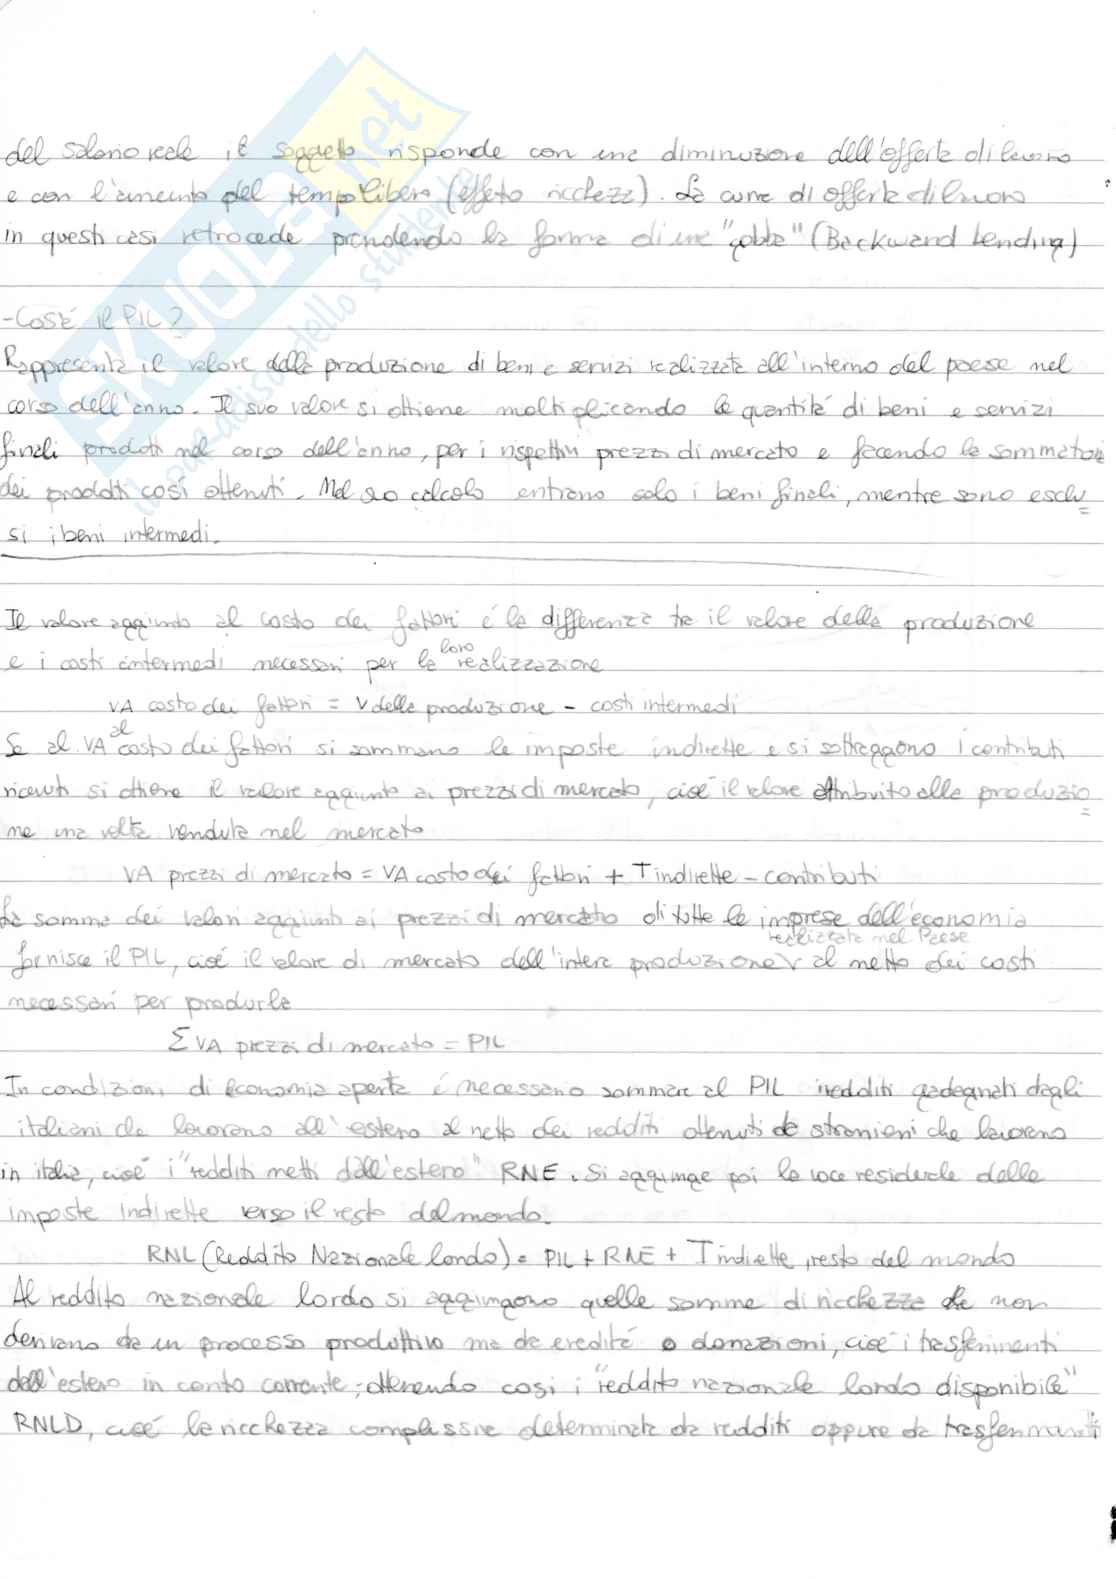 del salario reale il soggetto risponde con una diminuzione dell'offerta di lavoro
e con l'aumento del tempo libero (effetto ricchezza). La curva di offerta di lavoro
in questi casi retrocede prendendo la forma di una "gobba" (Backward bending)
-Cos'è il PIL?
Rappresenta il valore della produzione di beni e servizi realizzata all'interno del paese nel
corso dell'anno. Il suo valore si ottiene moltiplicando le quantità di beni e servizi
finali prodotti nel corso dell'anno, per i rispettivi prezzi di mercato e facendo la sommatoria
dei prodotti così ottenuti. Nel suo calcolo entrano solo i beni finali, mentre sono esclu=
si i beni intermedi.
Il valore aggiunto al costo dei fattori è la differenza tra il valore della produzione
e i costi intermedi necessari per la loro realizzazione
VA costo dei fattori = V della produzione - costi intermedi
Se al VA al costo dei fattori si sommano le imposte indirette e si sottraggono i contributi
ricevuti si ottiene il valore aggiunto ai prezzi di mercato, cioè il valore attribuito alla produzio=
ne una volta venduta nel mercato
VA prezzi di mercato = VA costo dei fattori + T indirette - contributi
La somma dei valori aggiunti ai prezzi di mercato di tutte le imprese dell'economia
fornisce il PIL, cioè il valore di mercato dell'intera produzione realizzata nel Paese al netto dei costi
necessari per produrla
Σ VA prezzi di mercato = PIL
In condizioni di economia aperta è necessario sommare al PIL i redditi guadagnati dagli
italiani che lavorano all'estero al netto dei redditi ottenuti da stranieri che lavorano
in italia, cioè i "redditi netti dall'estero" RNE. Si aggiunge poi la voce residuale delle
imposte indirette verso il resto del mondo.
RNL (Reddito Nazionale lordo) = PIL + RNE + T indirette, resto del mondo
Al reddito nazionale lordo si aggiungono quelle somme di ricchezza che non
derivano da un processo produttivo ma da eredità o donazioni, cioè i trasferimenti
dall'estero in conto corrente; ottenendo così i "reddito nazionale lordo disponibile"
RNLD, cioè la ricchezza complessiva determinata da redditi oppure da trasferimenti
SKUOLA.net
il paradiso dello studente